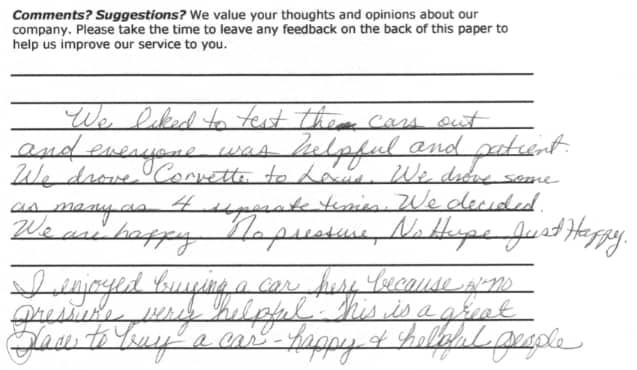 Comments? Suggestions? We value your thoughts and opinions about our
company. Please take the time to leave any feedback on the back of this paper to
help us improve our service to you.
We liked to test the cars out
and everyone was helpful and patient.
We drove Corvette to Lexus. We drove some
as many as 4 seperate times. We decided.
We are happy. No pressure, No Hype Just Happy.
I enjoyed buying a car here because no
pressure very helpful - this is a great
place to buy a car - happy & helpful people